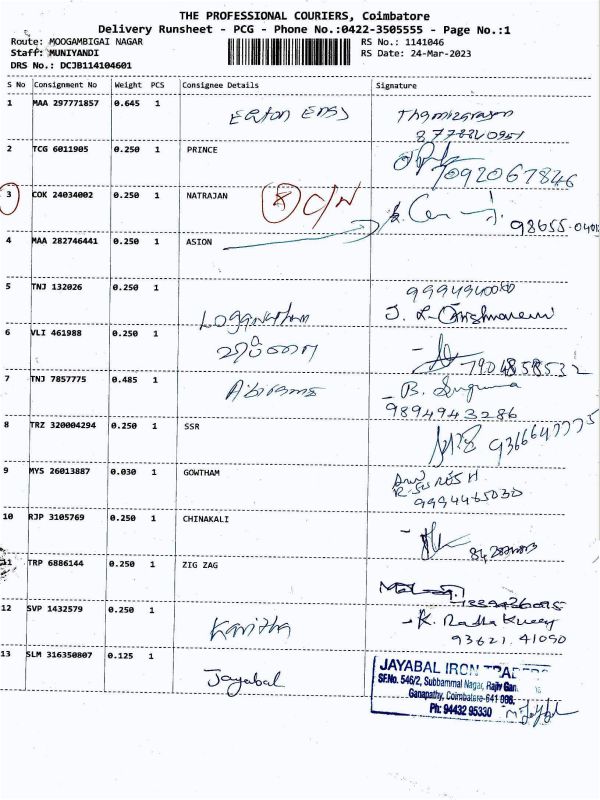 THE PROFESSIONAL COURIERS, Coimbatore
Delivery Runsheet - PCG - Phone No.:0422-3505555 - Page No.:1
Route: MOOGAMBIGAI NAGAR RS No.: 1141046
Staff: MUNIYANDI RS Date: 24-Mar-2023
DRS No.: DCJB114104601
S No Consignment No Weight PCS Consignee Details Signature
1 MAA 297771857 0.645 1
2 TCG 6011905 0.250 1 PRINCE 7092067846
3 COK 24034002 0.250 1 NATRAJAN C/N
4 MAA 282746441 0.250 1 ASION 98655-0401
5 TNJ 132026 0.250 1 Logganathan
6 VLI 461988 0.250 1 7904858532
7 TNJ 7857775 0.485 1 Abirama B. Suguna
9894943286
8 TRZ 320004294 0.250 1 SSR
9 MYS 26013887 0.030 1 GOWTHAM R. SURESH
9994465030
10 RJP 3105769 0.250 1 CHINAKALI
11 TRP 6886144 0.250 1 ZIG ZAG
12 SVP 1432579 0.250 1 Kavitha K. Radha
93621.41090
13 SLM 316350807 0.125 1 Jayabal
JAYABAL IRON TRADERS
SF.No. 546/2, Subbammal Nagar, Rajiv Gan
Ganapathy, Coimbatore-641 006.
Ph: 94432 95330